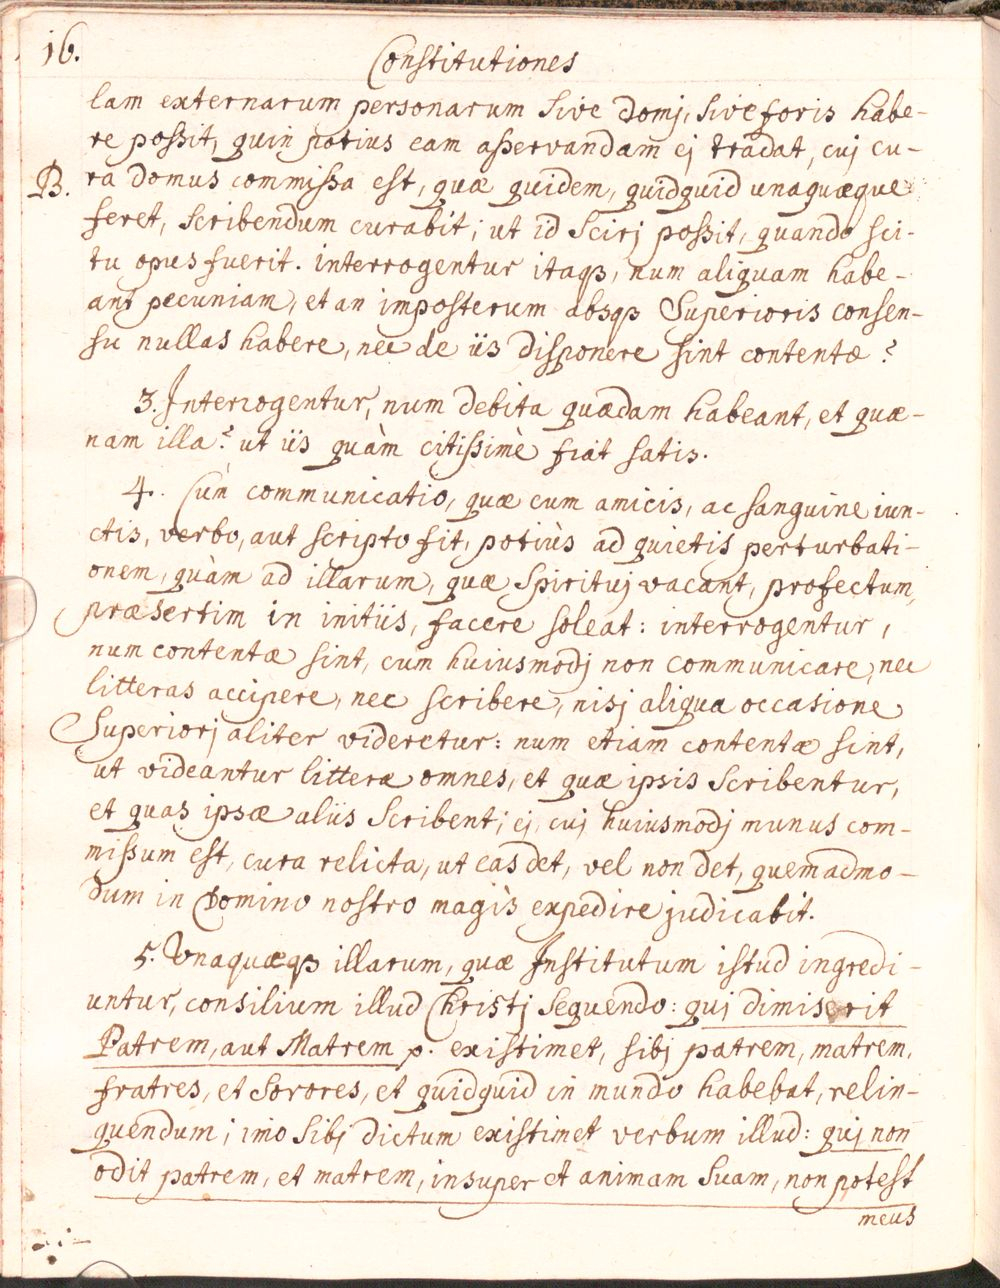 16.
Constitutiones
lam externarum personarum sive domj, sive foris habe-
re possit, quin potius eam asservandam ej tradat, cuj cu-
B. ra domus commissa est, quæ quidem, quidquid unaquæque
feret, scribendum curabit; ut id scirj possit, quando sci-
tu opus fuerit. interrogentur itaqȝ, num aliquam habe-
ant pecuniam, et an imposterum absqȝ Superioris consen-
su nullas habere, nec de iis disponere sint contentæ?
3. Interrogentur, num debita quædam habeant, et quæ-
nam illa? ut iis quàm citissimè fiat satis.
4. Cùm communicatio, quæ cum amicis, ac sanguine iun-
ctis, verbo, aut scripto fit, potiùs ad quietis perturbati-
onem, quàm ad illarum, quæ Spirituj vacant, profectum,
præsertim in initiis, facere soleat: interrogentur,
num contentæ sint, cum huiusmodj non communicare, nec
litteras accipere, nec scribere, nisj aliqua occasione
Superiorj aliter videretur: num etiam contentæ sint,
ut videantur litteræ omnes, et quæ ipsis scribentur,
et quas ipsæ aliis scribent; ej, cuj huiusmodj munus com-
missum est, cura relicta, ut eas det, vel non det, quemadmo-
dum in Domino nostro magìs expedire judicabit.
5. Unaquæqȝ illarum, quæ Institutum istud ingredi-
untur, consilium illud Christj sequendo: quj dimiserit
Patrem, aut Matrem p. existimet, sibj patrem, matrem,
fratres, et sorores, et quidquid in mundo habebat, relin-
quendum; imò sibj dictum existimet verbum illud: quj non
odit patrem, et matrem, insuper et animam suam, non potest
meus